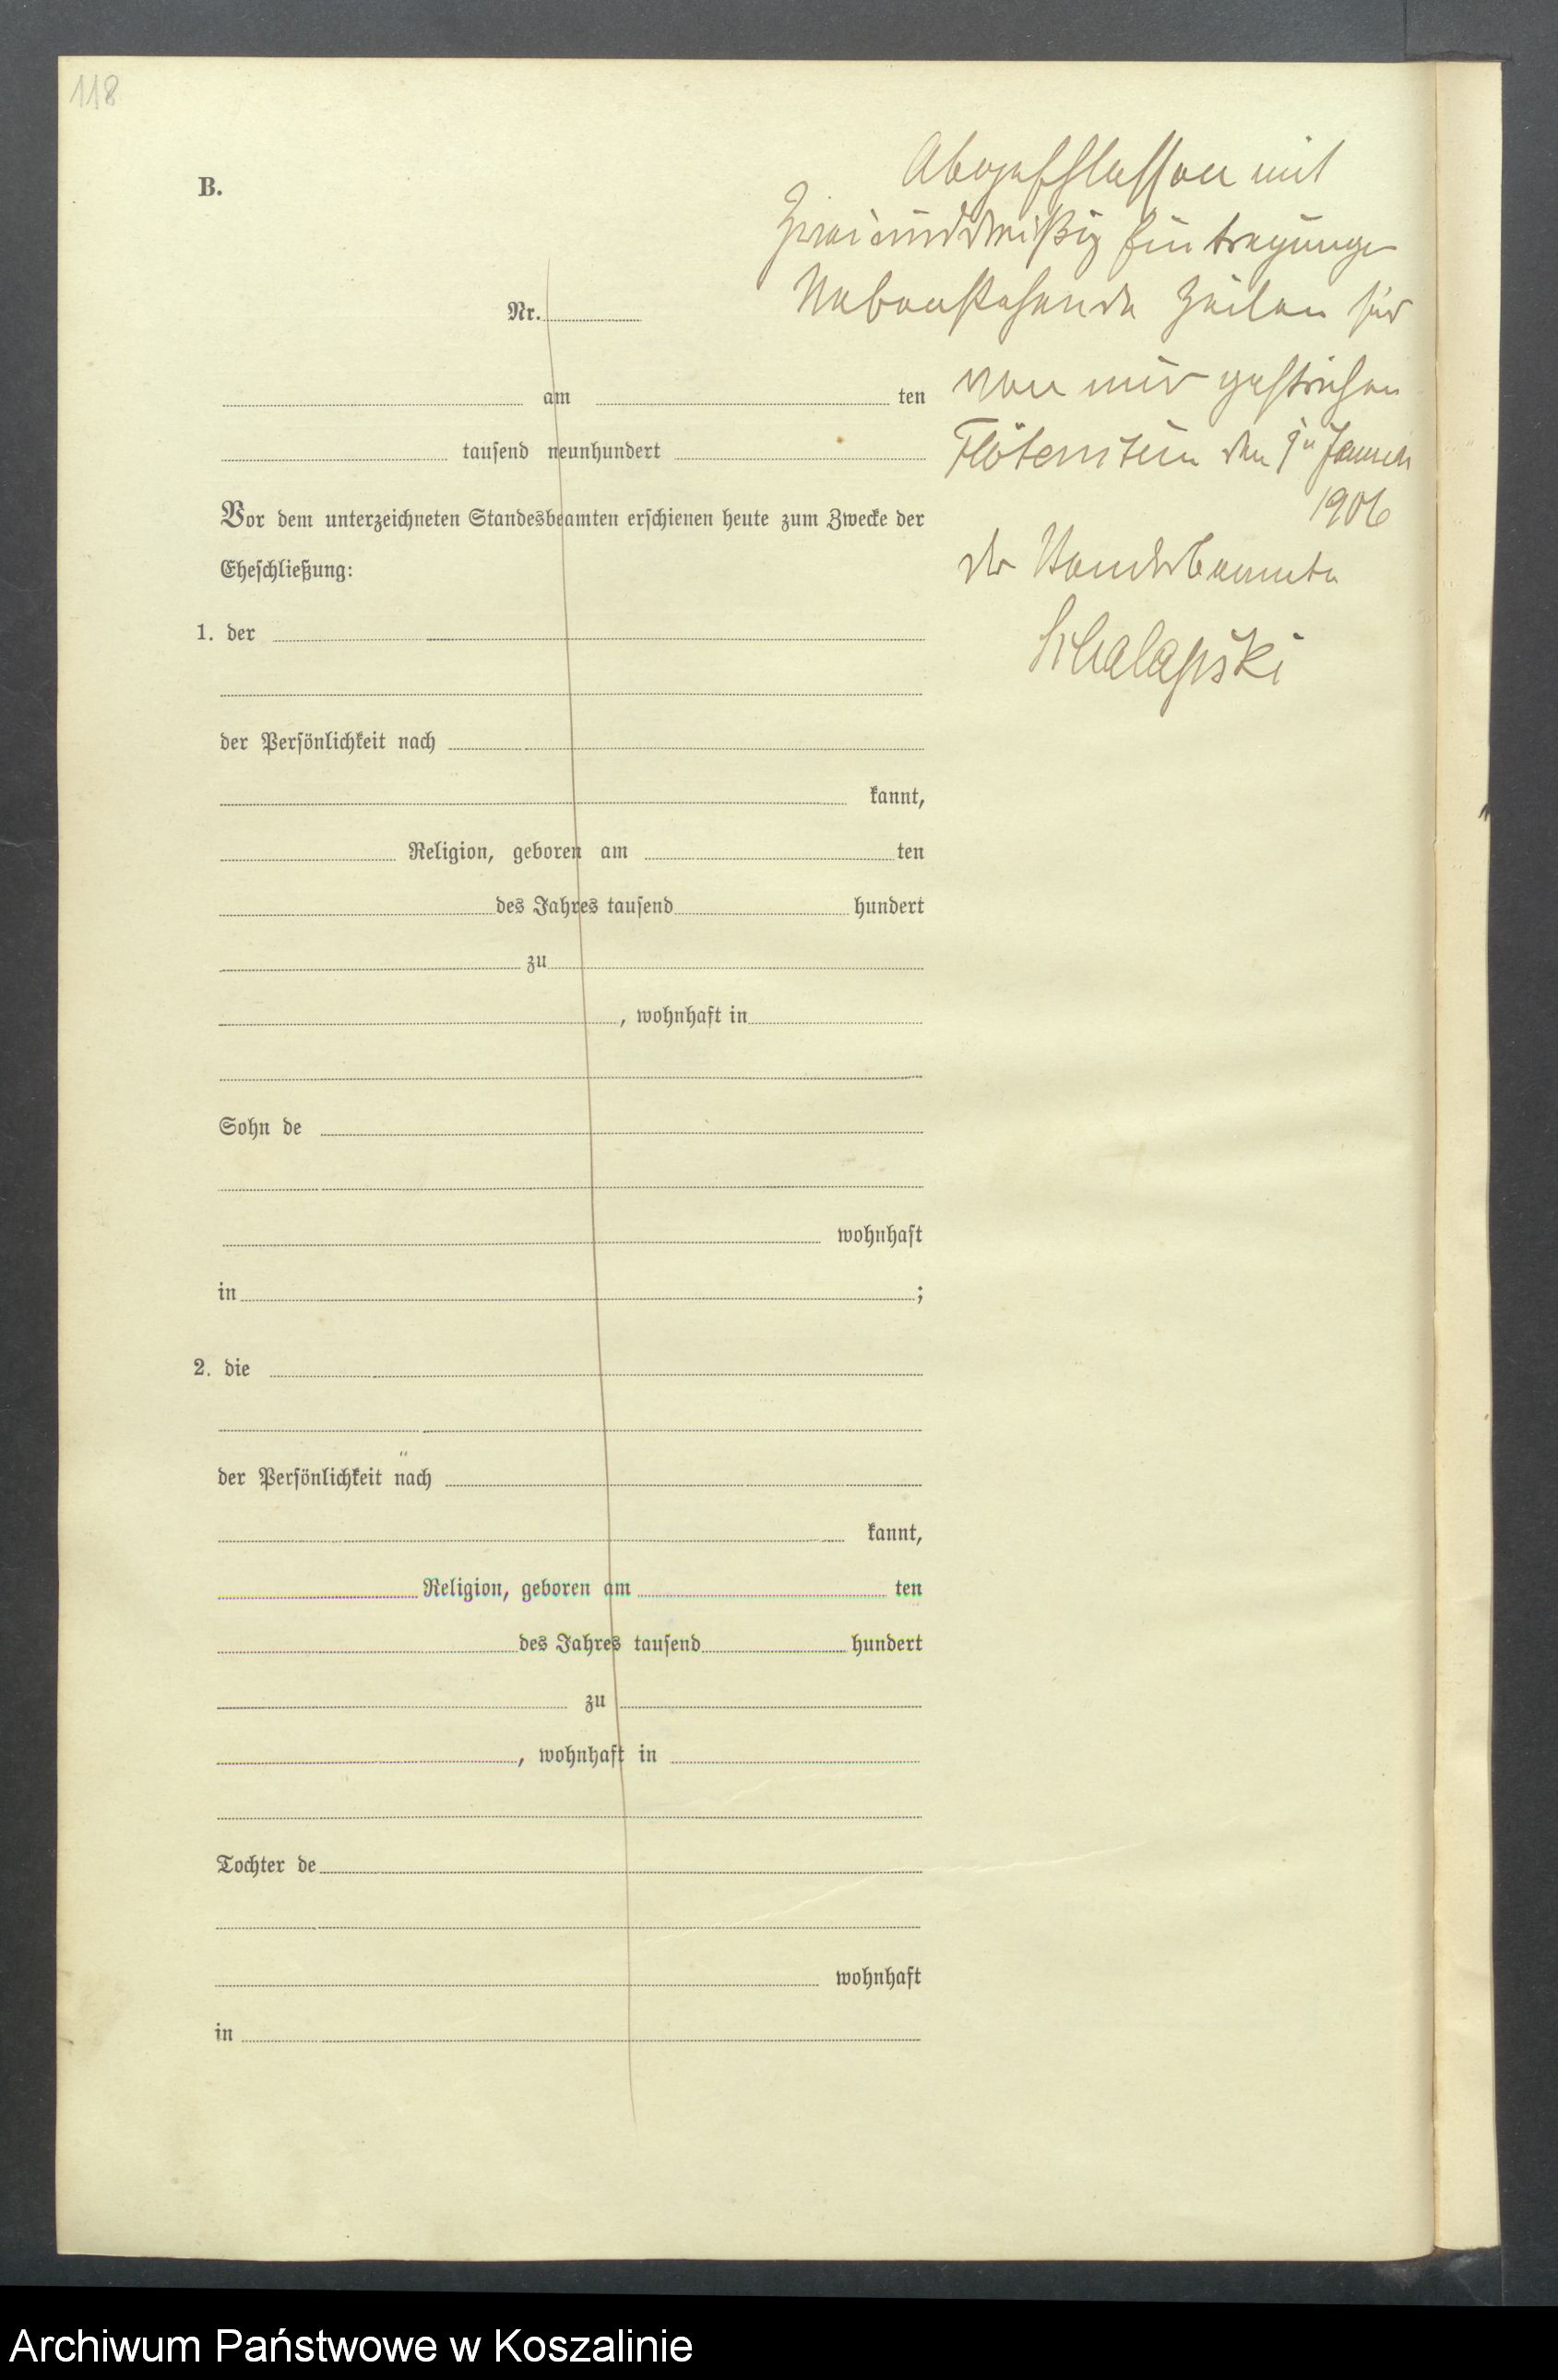 118
B.
Abgeschlossen mit
Zweiunddreißig Eintragungen
Nebenstehende Zeilen sind
von mir gestrichen
Flötenstein den Januar
1906
der Standesbeamte
Nr.
am ten
tausend neunhundert
Vor dem unterzeichneten Standesbeamten erschienen heute zum Zwecke der
Eheschließung:
1. der
der Persönlichkeit nach
kannt,
Religion, geboren am ten
des Jahres tausend hundert
zu
, wohnhaft in
Sohn de
wohnhaft
in ;
2. die
der Persönlichkeit nach
kannt,
Religion, geboren am ten
des Jahres tausend hundert
zu
, wohnhaft in
Tochter de
wohnhaft
in
Archiwum Państwowe w Koszalinie